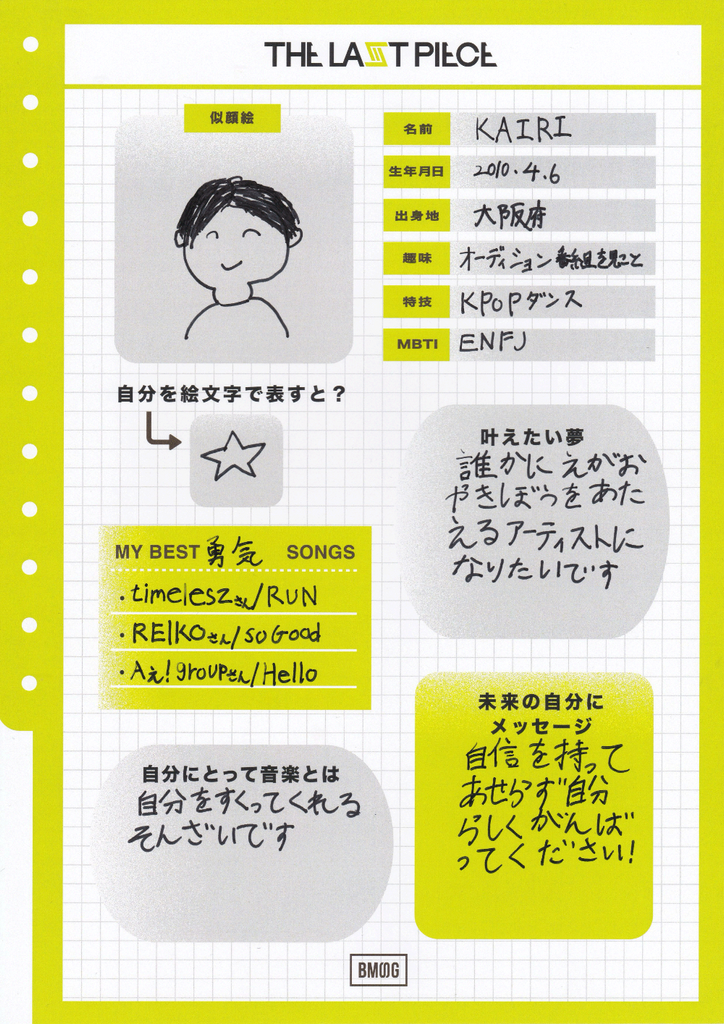 THE LAST PIECE
似顔絵
名前 KAIRI
生年月日 2010.4.6
出身地 大阪府
趣味 オーディション番組を見こと
特技 KPOPダンス
MBTI ENFJ
自分を絵文字で表すと？
叶えたい夢
誰かに えがお
やきぼうをあた
えるアーティストに
なりたいです
MY BEST 勇気 SONGS
・timeleszさん/RUN
・REIKOさん/so Good
・Aぇ!groupさん/Hello
未来の自分に
メッセージ
自信を持って
あせらず自分
らしくがんば
ってください!
自分にとって音楽とは
自分をすくってくれる
そんざいです
BMSG